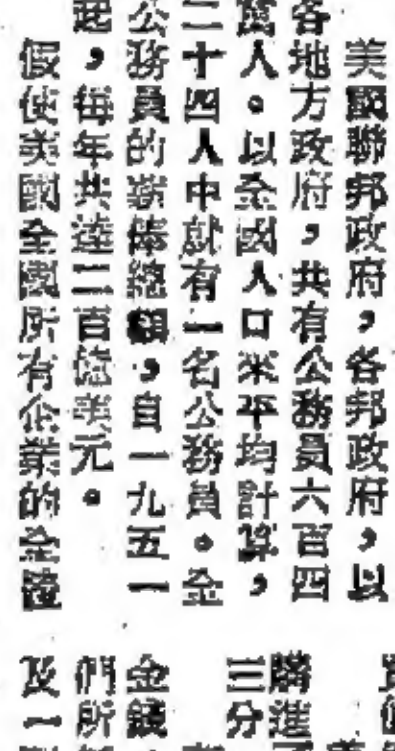 美國聯邦政府，各邦政府，以
各地方政府，共有公務員六百四
萬人。以全國人口來平均計算，
二十四人中就有一名公務員。全
公務員的薪俸總額，自一九五一
起，每年共達二百億美元。
假使美國全國所有企業的全體
購進
三分
金錢
們所
及一